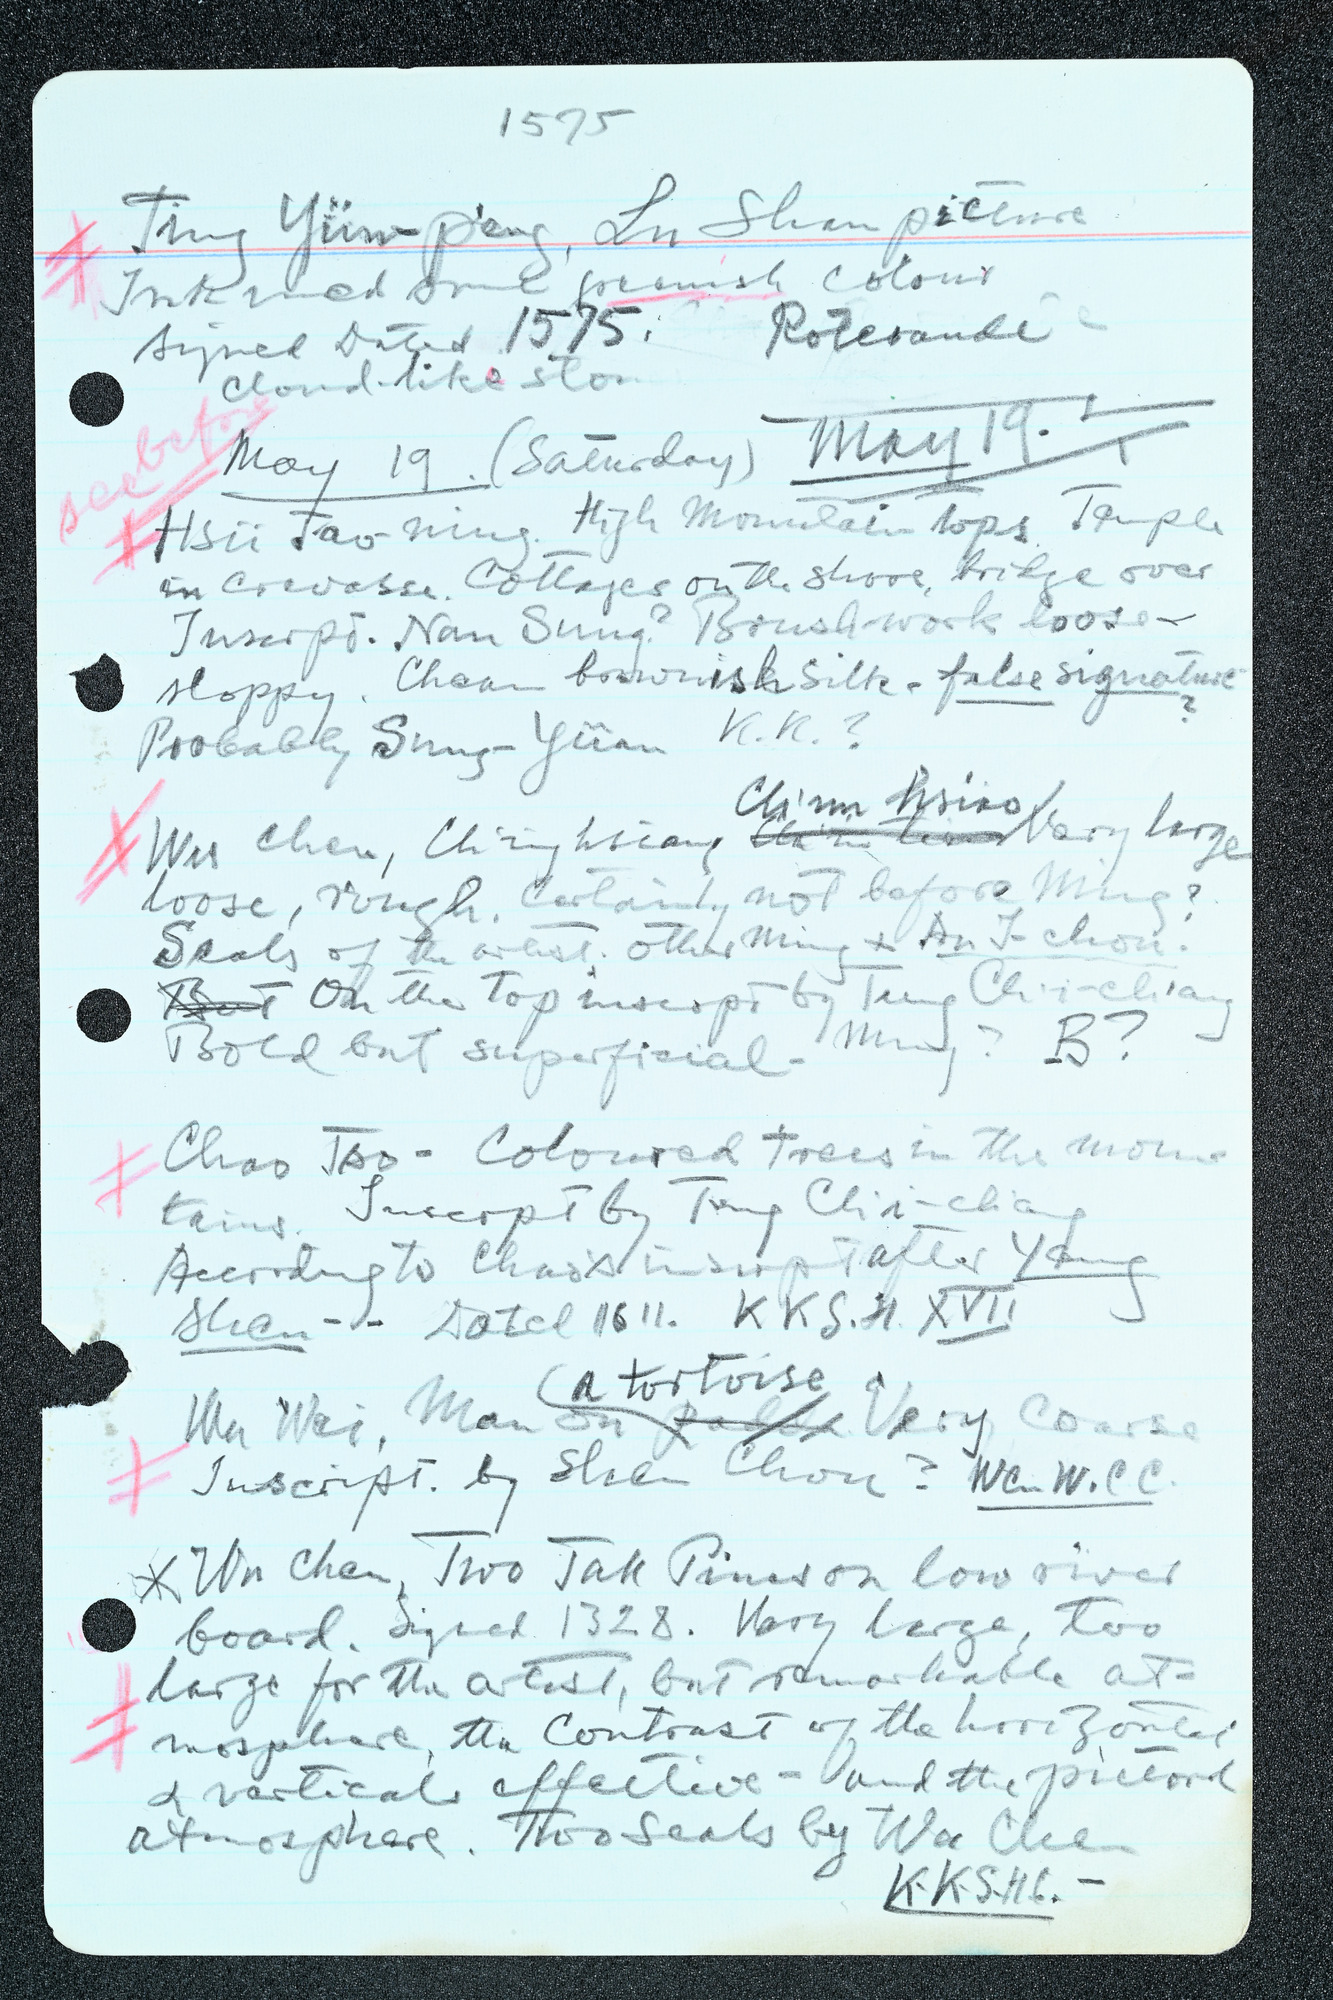 1575
Ting Yün-p'eng, Lu Shan picture
Ink and some greenish colour
Signed Dated 1575.
cloud-like ston
see before
May 19. (Saturday) May 19.
Hsü Tao-ning. High Mountain tops. Temple
in crevasse. Cottages on the shore, bridge over
Inscript. Nan Sung? Brushwork loose-
sloppy. brownish silk - false signature?
Probably Sung-Yüan K.K.?
Ch'un hsiao
Wu Chen, Ch'ing hsiang Very large
loose, rough. Certainly not before Ming?
Seals of the artist. other Ming & An I-chou.
But On the top inscript by Tung Ch'i-ch'ang
Bold but superficial - Ming? B?
Chao Tso - Coloured trees in the moun
tains. Inscript by Tung Ch'i-ch'ang
According to Chao's inscript after Yang
Shen -- Dated 1611. K K S.H. XVII
(a tortoise
Wu Wei, Man on Very coarse
Inscript. by Shen Chou? Wen W.C C.
* Wu Chen, Two Tall Pines on low river
board. Signed 1328. Very large, too
large for the artist, but remarkable at=
mosphere, the contrast of the horizontal
& verticals effective - and the pictorial
atmosphere. Two Seals by Wu Chen
K.K.S.H.C. -